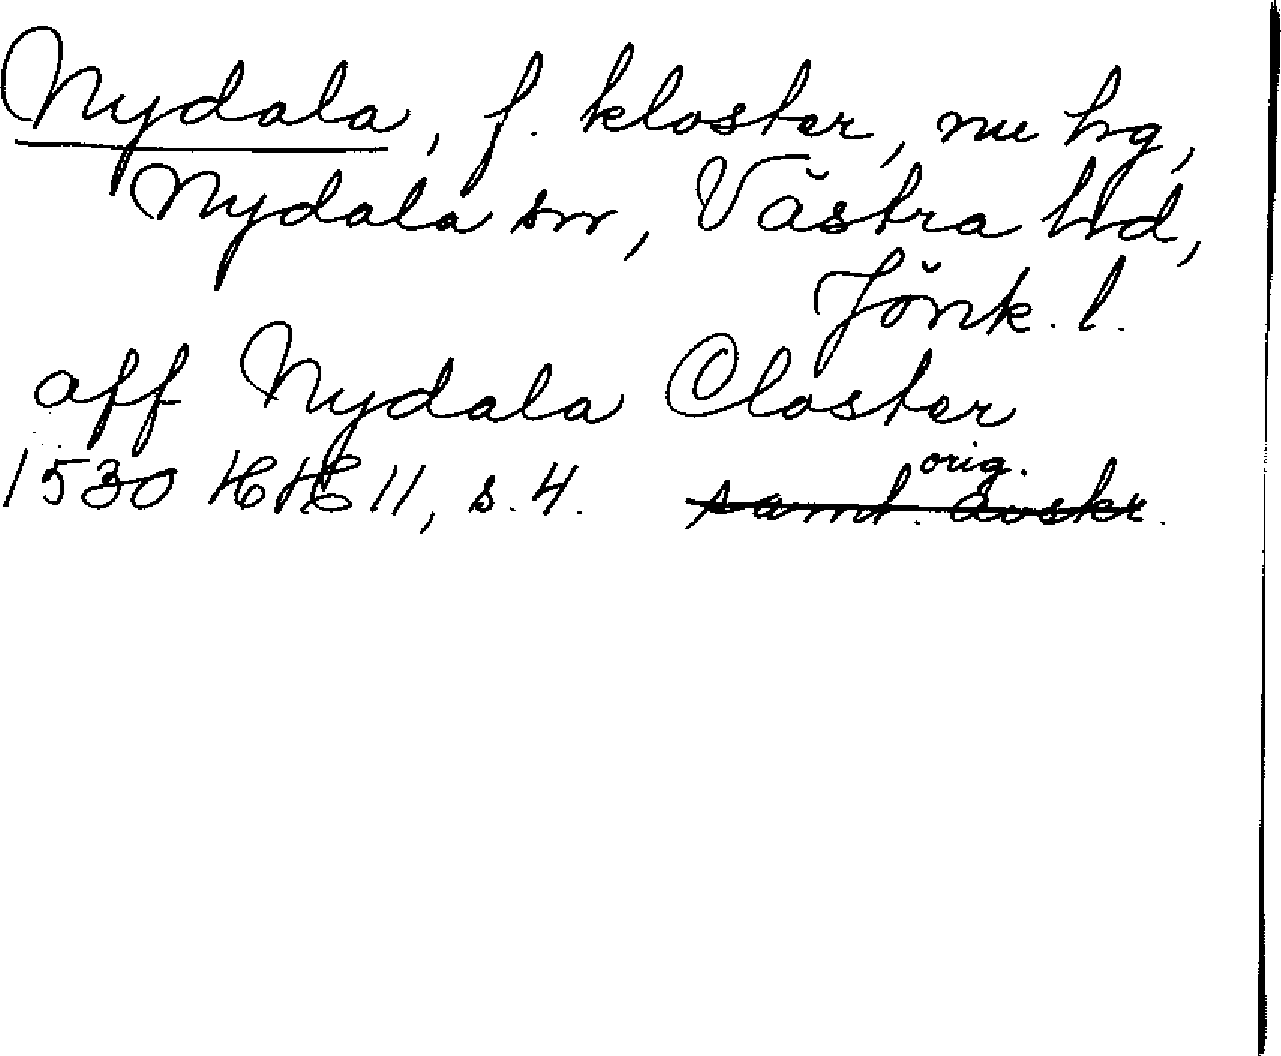 Nydala, f. kloster, nu hg,
Nydala sn, Västra hd,
Jönk. l.
aff Nydala Closter
orig.
1530 HH 11, s. 4. samt. avskr.